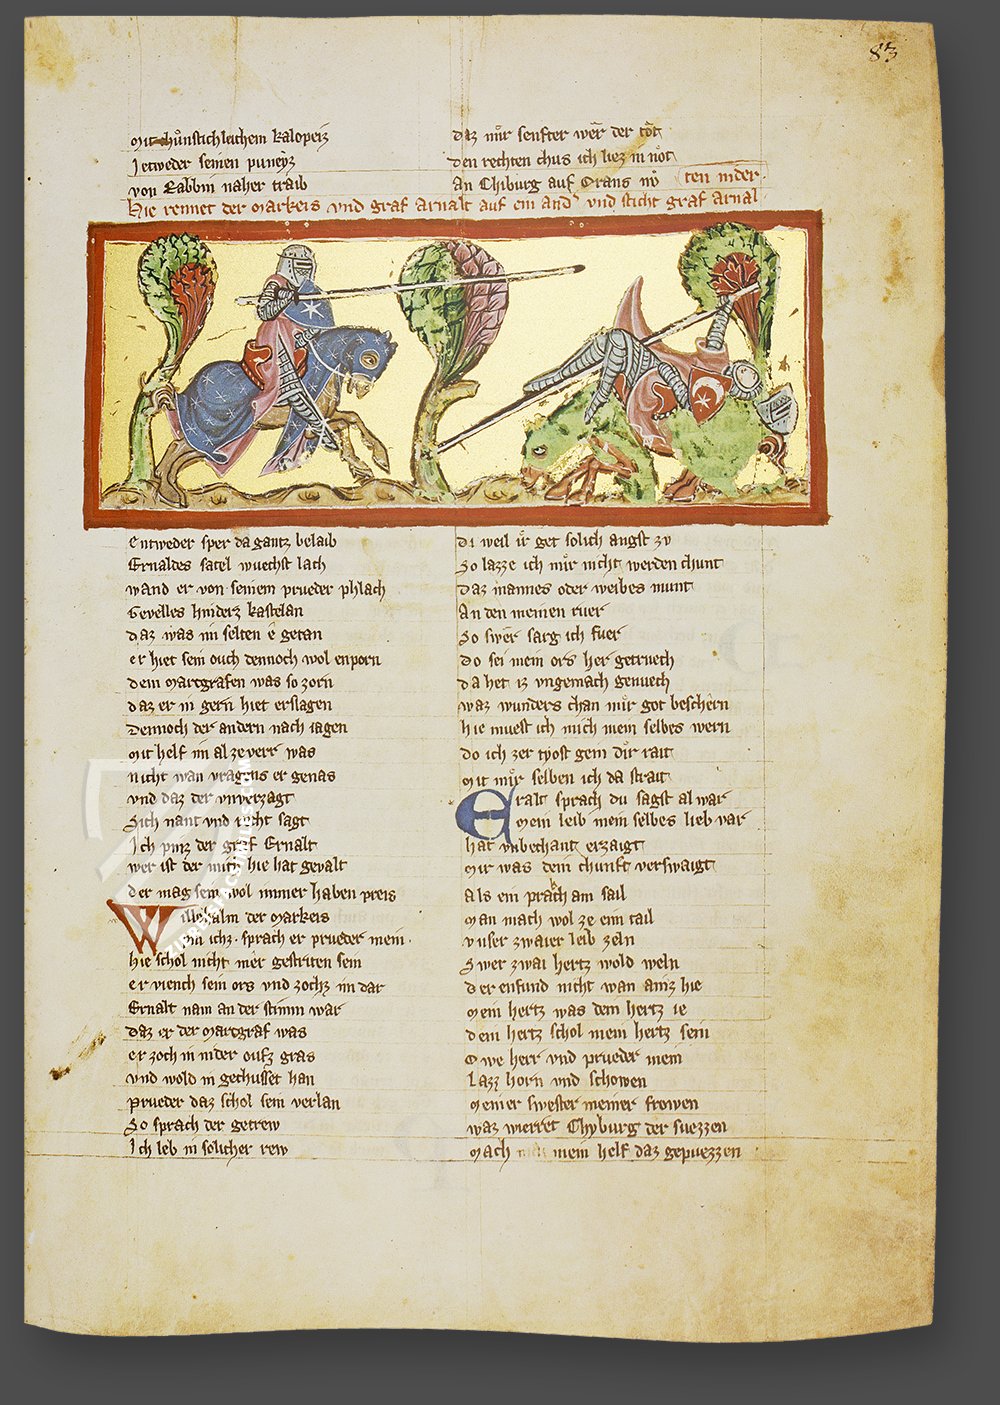 83
mit chůnstichleichem kalopeiz
Jetweder seinen puneyz
von Labbin naher traib
daz mir senfter wer der tot
den rechten chus ich liez in not
An Chiburg auf Orans no
ten nider.
Hie rennet der Markeis vnd graf arnalt auf ein and vnd sticht graf arnal
entweder sper da gantz belaib
Ernaldes satel wuechst lach
wand er von seinem prueder phlach
Gevelles hinderz kastelan
daz was im selten e getan
er hiet sein ouch dennoch wol enporn
dem marcgrafen was so zorn
daz er in gern hiet erslagen
dennoch der andern nach iagen
mit helf im al zeverr was
nicht wan vragens er genas
vnd daz der vnverzagt
Sich nant vnd recht sagt
Ich pinz der graf Ernalt
wer ist der mich hie hat gevalt
der mag sein wol immer haben preis
Willyhalm der markeis
pin ichz. sprach er prueder mein.
hie schol nicht mer gestriten sein
er viench sein ors vnd zochz im dar
Ernalt nam an der stimm war
daz er der marcgraf was
er zoch in nider oufz gras
vnd wold in gechusset han
prueder daz schol sein verlan
So sprach der getrew
Ich leb in solicher rew
di weil ir get solich angst zv
So lazze ich mir nicht werden chunt
daz mannes oder weibes munt
An den meinen ruer
So swer sarg ich fuer
do sei mein ors her getruech
da het iz vngemach genuech
waz wunders chan mir got beschern
hie muest ich mich mein selbes wern
do ich zer tyost gein dir rait
mit mir selben ich da strait
Eralt sprach du sagst al war
mein leib mein selbes lieb var
hat vnbechant erzaigt
mir was dein chunft verswaigt
Als ein prach am sail
man mach wol ze ein tail
vnser zwaier leib zeln
Swer zwai hertz wold weln
der enfund nicht wan ainz hie
mein hertz was dem hertz ie
dein hertz schol mein hertz sein
Owe herr vnd prueder mein
Lazz horn vnd schowen
meiner swester meiner frowen
waz wierret Chyburg der suezzen
mach mein helf daz gepuezzen